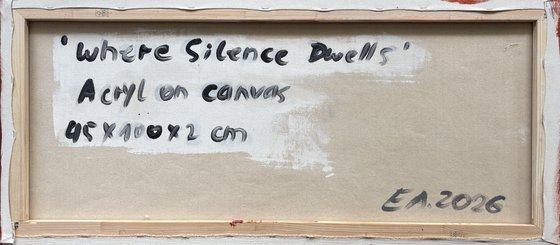 'Where Silence Dwells'
Acryl on canvas
45x100x2 cm
E.A.2026